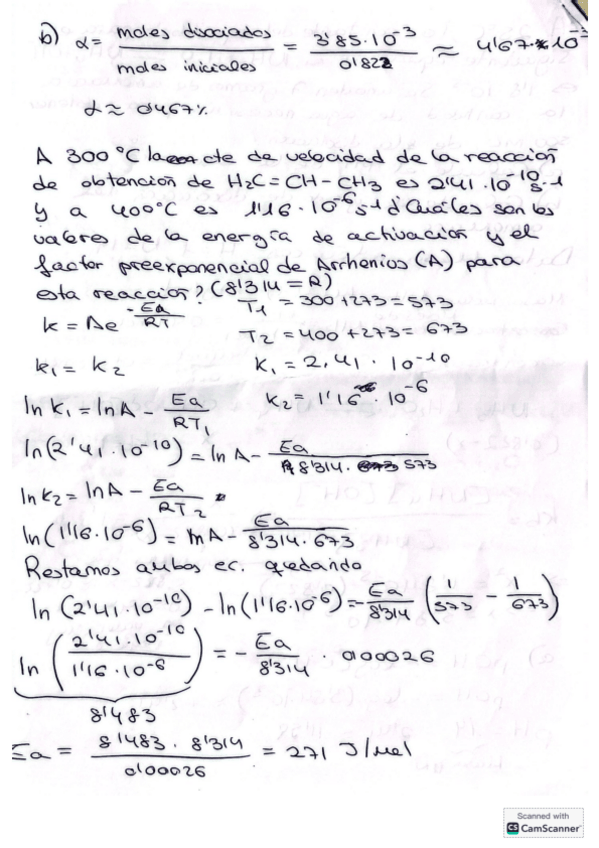 b) α = moles disociados / moles iniciales = 3'85·10⁻³ / 0'822 ≈ 4'67·10⁻³
α ≈ 0'467%
A 300 °C la cte de velocidad de la reacción
de obtención de H₂C=CH-CH₃ es 2'41·10⁻¹⁰ s⁻¹
y a 400°C es 1'16·10⁻⁶ s⁻¹ ¿Cuáles son los
valores de la energía de activación y el
factor preexponencial de Arrhenios (A) para
esta reacción? (8'314 = R)
T₁ = 300+273 = 573
k = Ae^(-Ea/RT)
T₂ = 400+273 = 673
k₁ = k₂
K₁ = 2,41·10⁻¹⁰
K₂ = 1'16·10⁻⁶
ln K₁ = ln A - Ea/RT₁
ln(2'41·10⁻¹⁰) = ln A - Ea / 8'314·573
ln k₂ = ln A - Ea/RT₂
ln(1'16·10⁻⁶) = lnA - Ea / 8'314·673
Restamos ambos ec. quedando
ln(2'41·10⁻¹⁰) - ln(1'16·10⁻⁶) = - Ea/8'314 (1/573 - 1/673)
ln(2'41·10⁻¹⁰ / 1'16·10⁻⁶) = - Ea/8'314 · 0'00026
8'483
Ea = 8'483·8'314 / 0'00026 = 271 J/mol
Scanned with
CS CamScanner